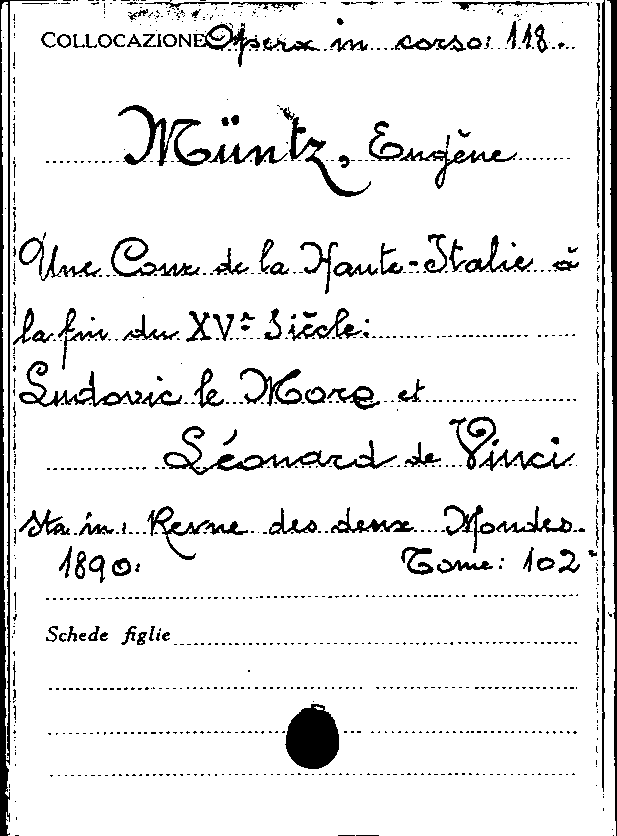 COLLOCAZIONE Opera in corso: 118.
Müntz, Eugène
Une Cour de la Haute-Italie à
la fin du XVᵉ Siècle:
Ludovic le More et
Léonard de Vinci
Sta in: Revue des deux Mondes.
1890: Tome: 102°
Schede figlie